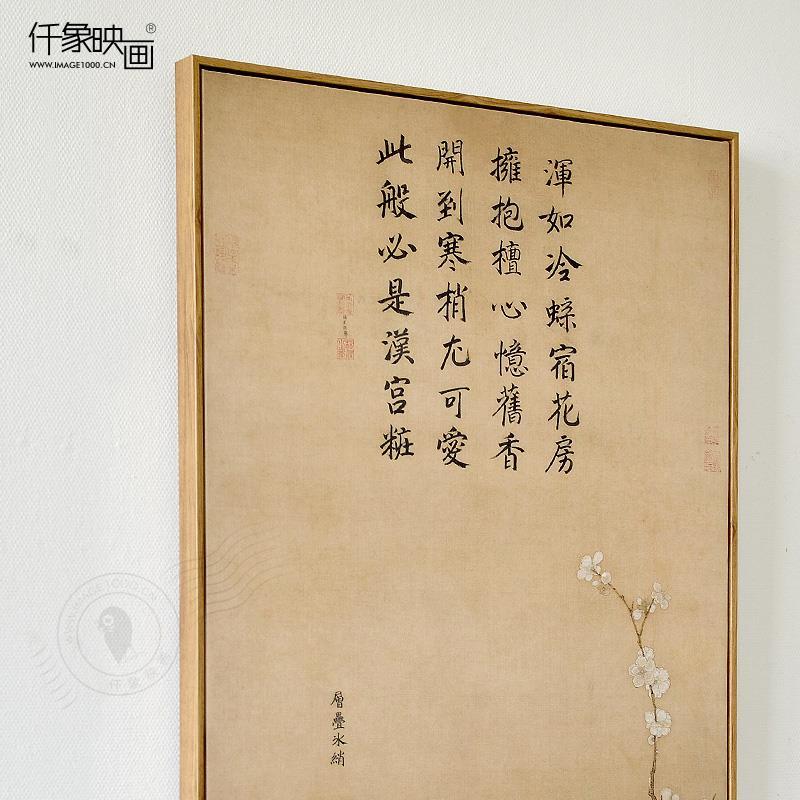 仟象映画®
WWW.IMAGE1000.CN
渾如冷蝶宿花房
擁抱檀心憶舊香
開到寒梢尤可愛
此般必是漢宮粧
層疊冰綃